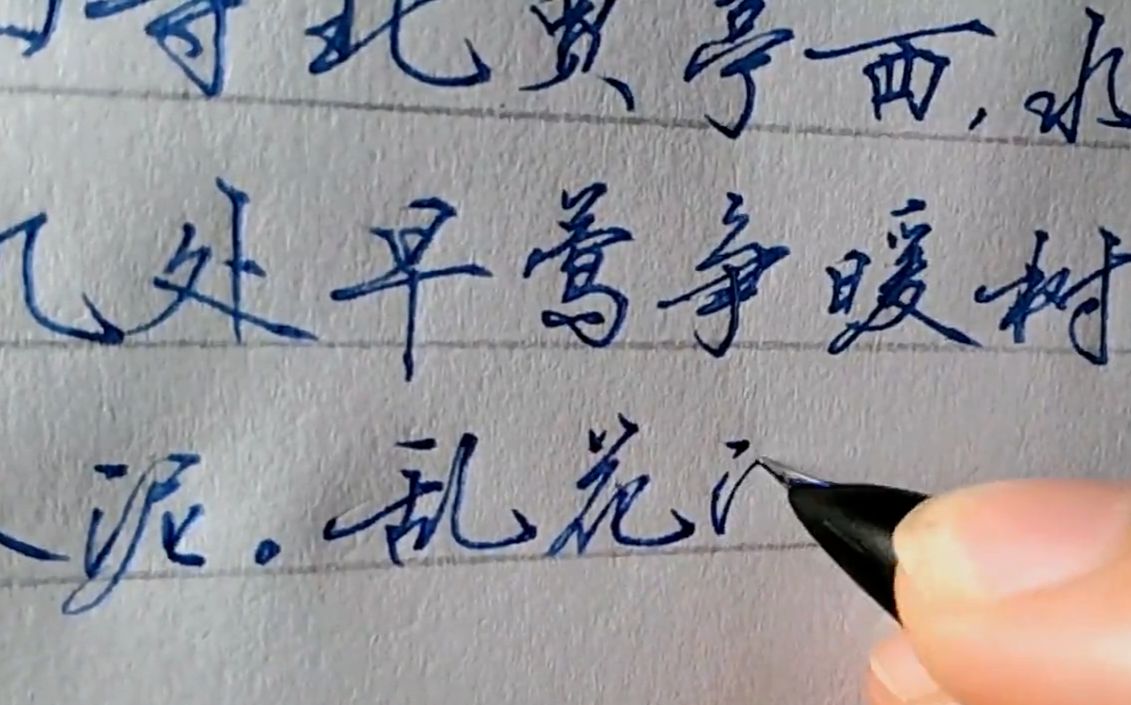 寺北贾亭西，水
几处早莺争暖树
泥。乱花